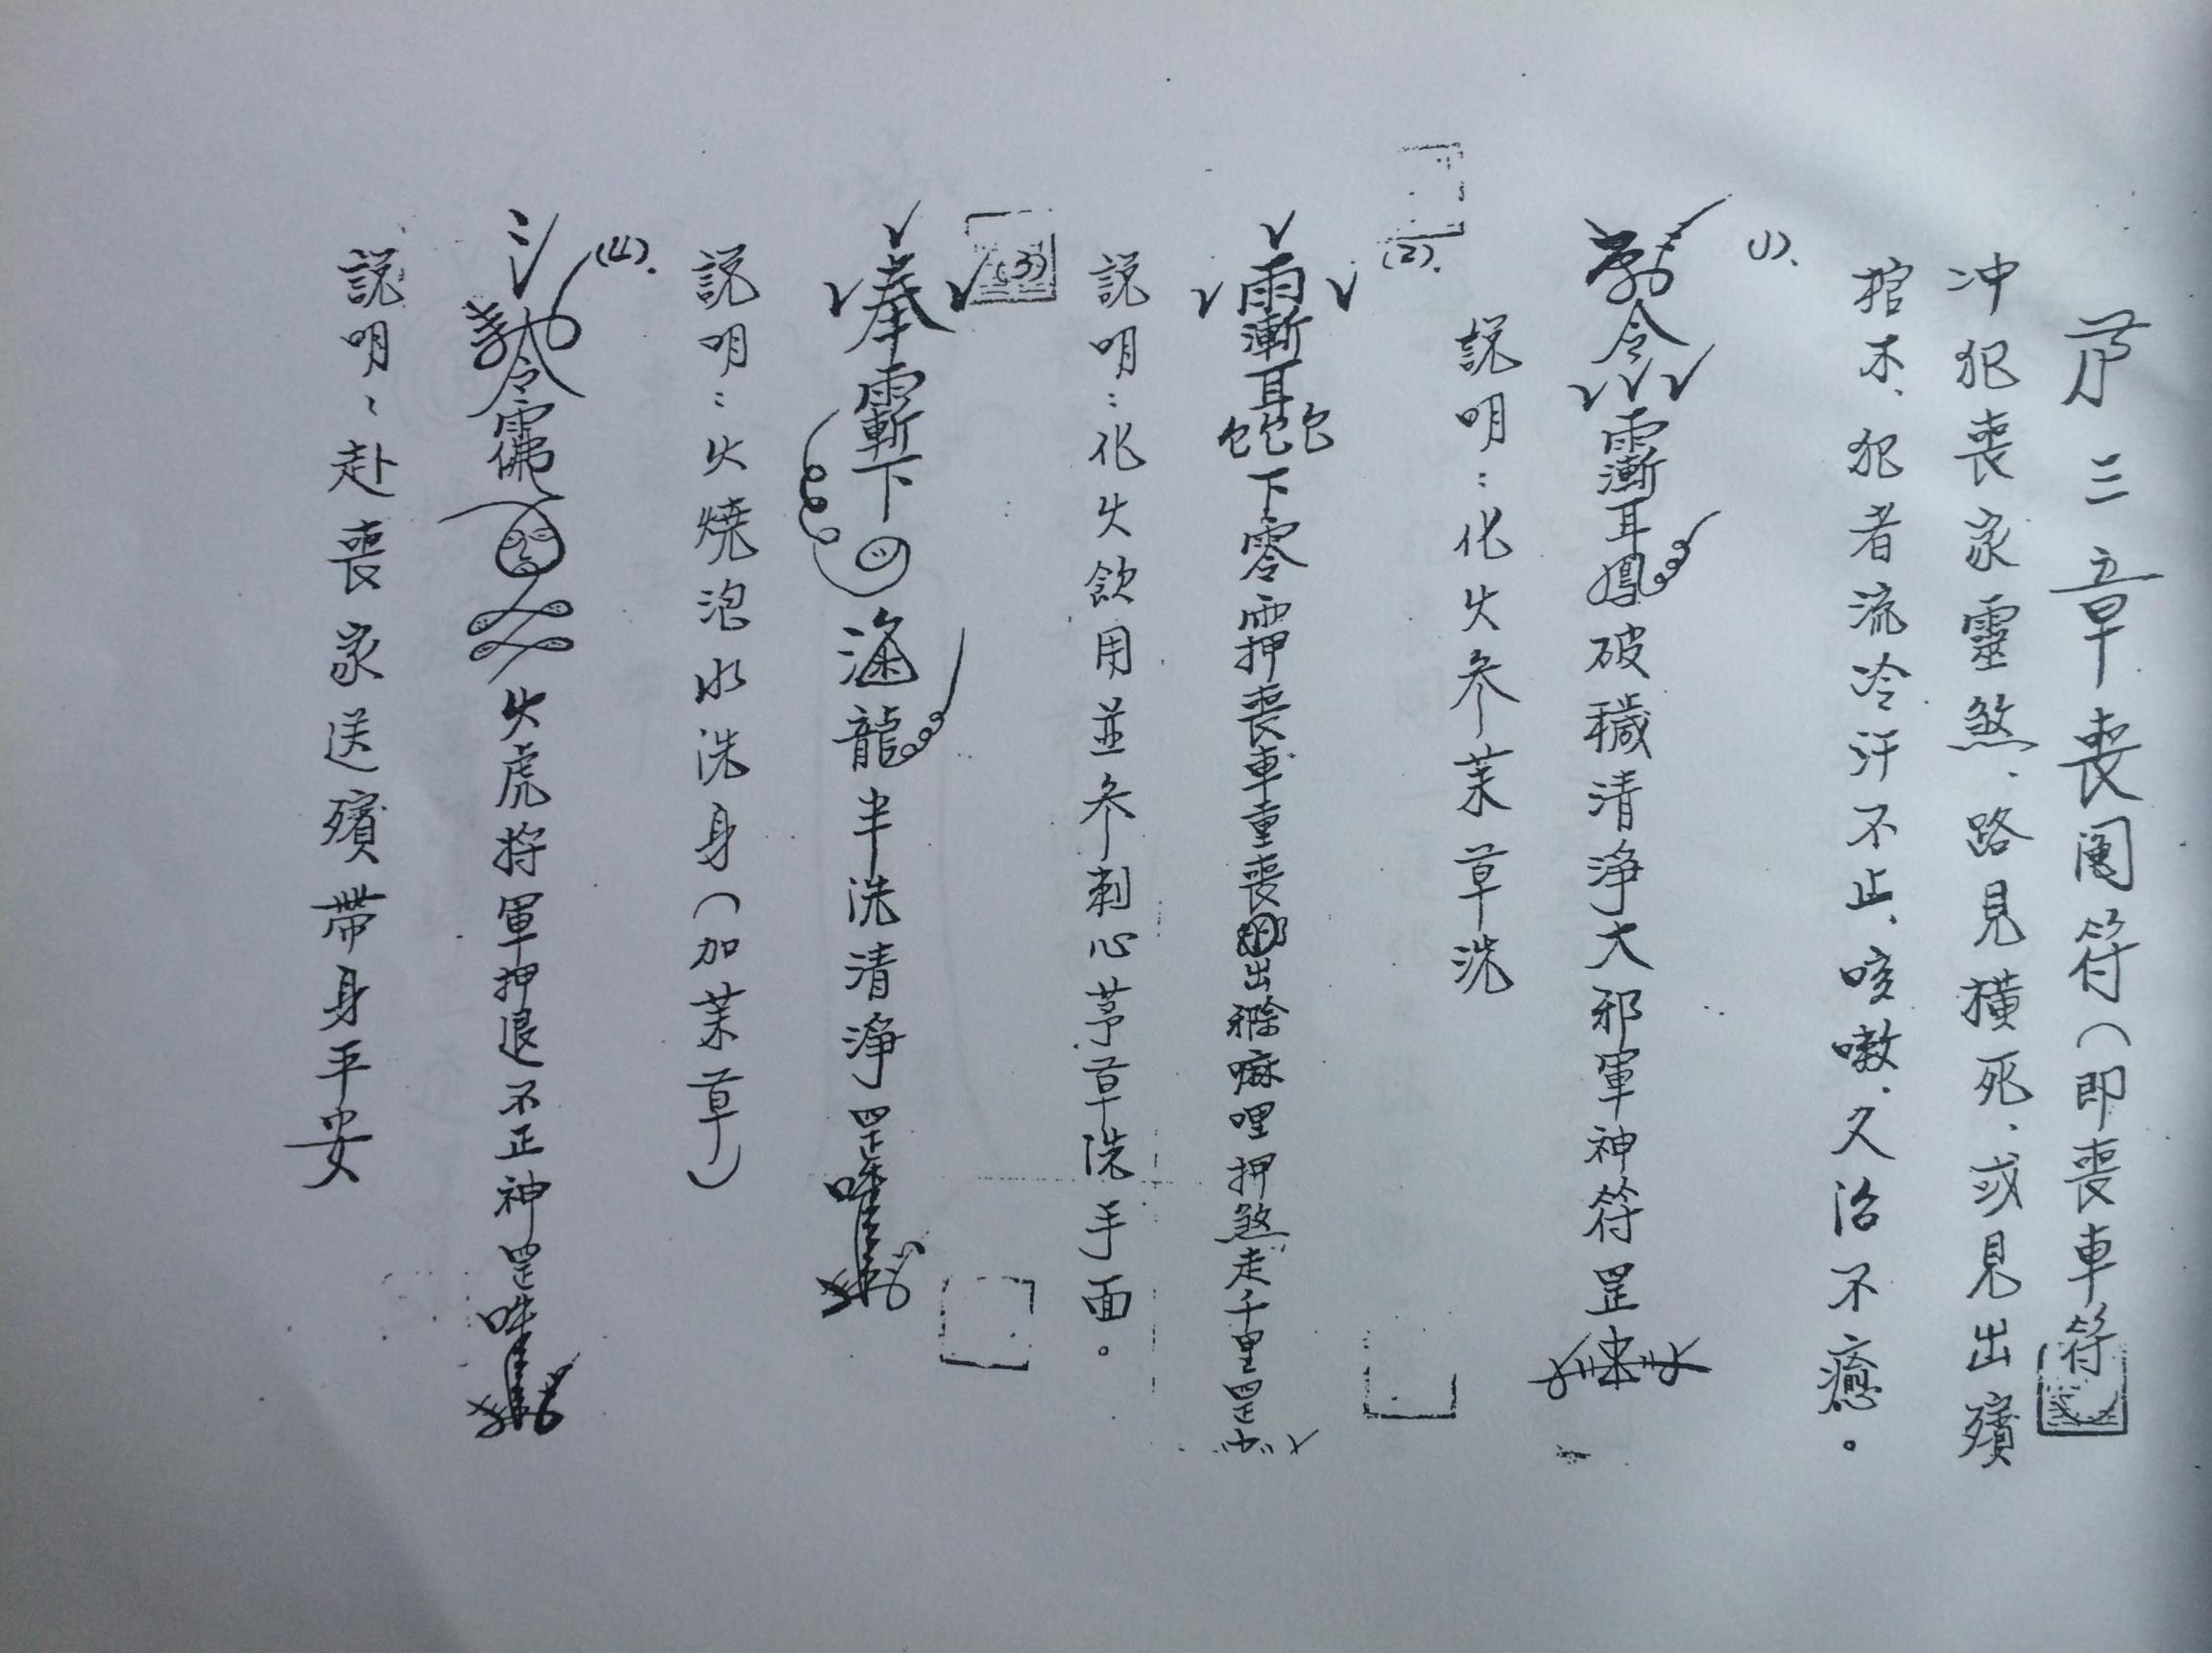 第三章喪闖符(即喪車符)
冲犯喪家靈煞、路見橫死、或見出殯
棺木、犯者流冷汗不止、咳嗽、久治不癒。
(1)、
勅令 耳 破穢清淨大邪軍神符罡
說明：化火參茉草洗
(2)、
雨漸耳 下零 押喪車重喪 出 嘛哩押煞走千里罡
說明：化火飲用並參刺心茅草洗手面。
(3)
奉 下 龍半洗清淨罡
說明：火燒泡水洗身(加茉草)
(4)、
令 火虎將軍押退不正神罡
說明：赴喪家送殯帶身平安